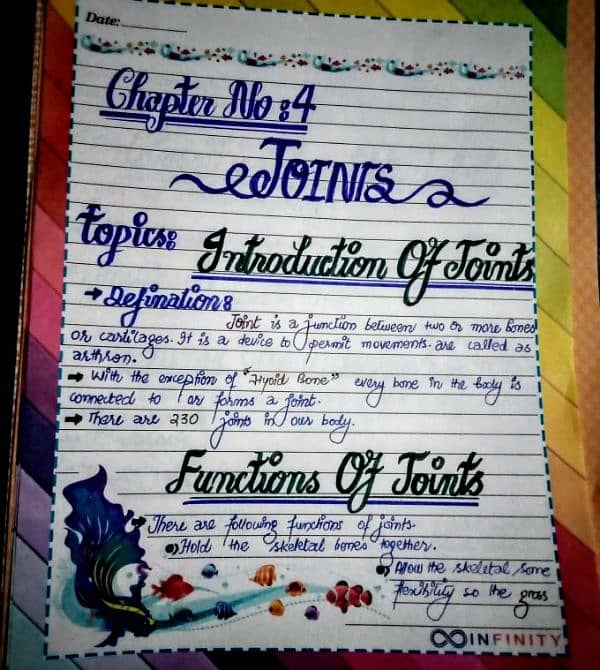 Date:
Chapter No : 4
JOINTS
topics:
Introduction Of Joints
→ Defination :
Joint is a junction between two or more bones
or cartilages. It is a device to permit movements. are called as
arthron.
→ With the exception of "Hyoid Bone" every bone in the body is
connected to or forms a joint.
→ There are 230 joints in our body.
Functions Of Joints
→ There are following functions of joints.
Hold the skeletal bones together.
Allow the skeletal some
flexibility so the gross
INFINITY